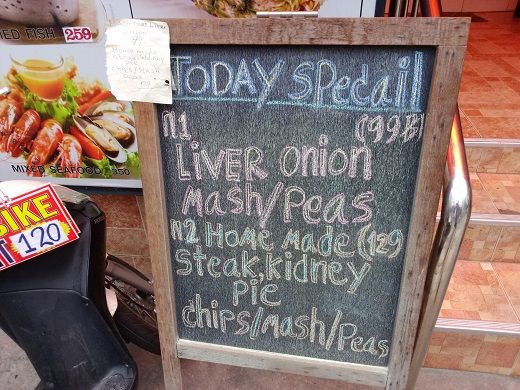 ED FISH 259
MIXED SEAFOOD 350
BIKE
T 120
TODAY SPecail
n1 (99฿)
LIVER onion
mash/Peas
n2 Home made (129)
steak,kidney
pie
chips/mash/Peas